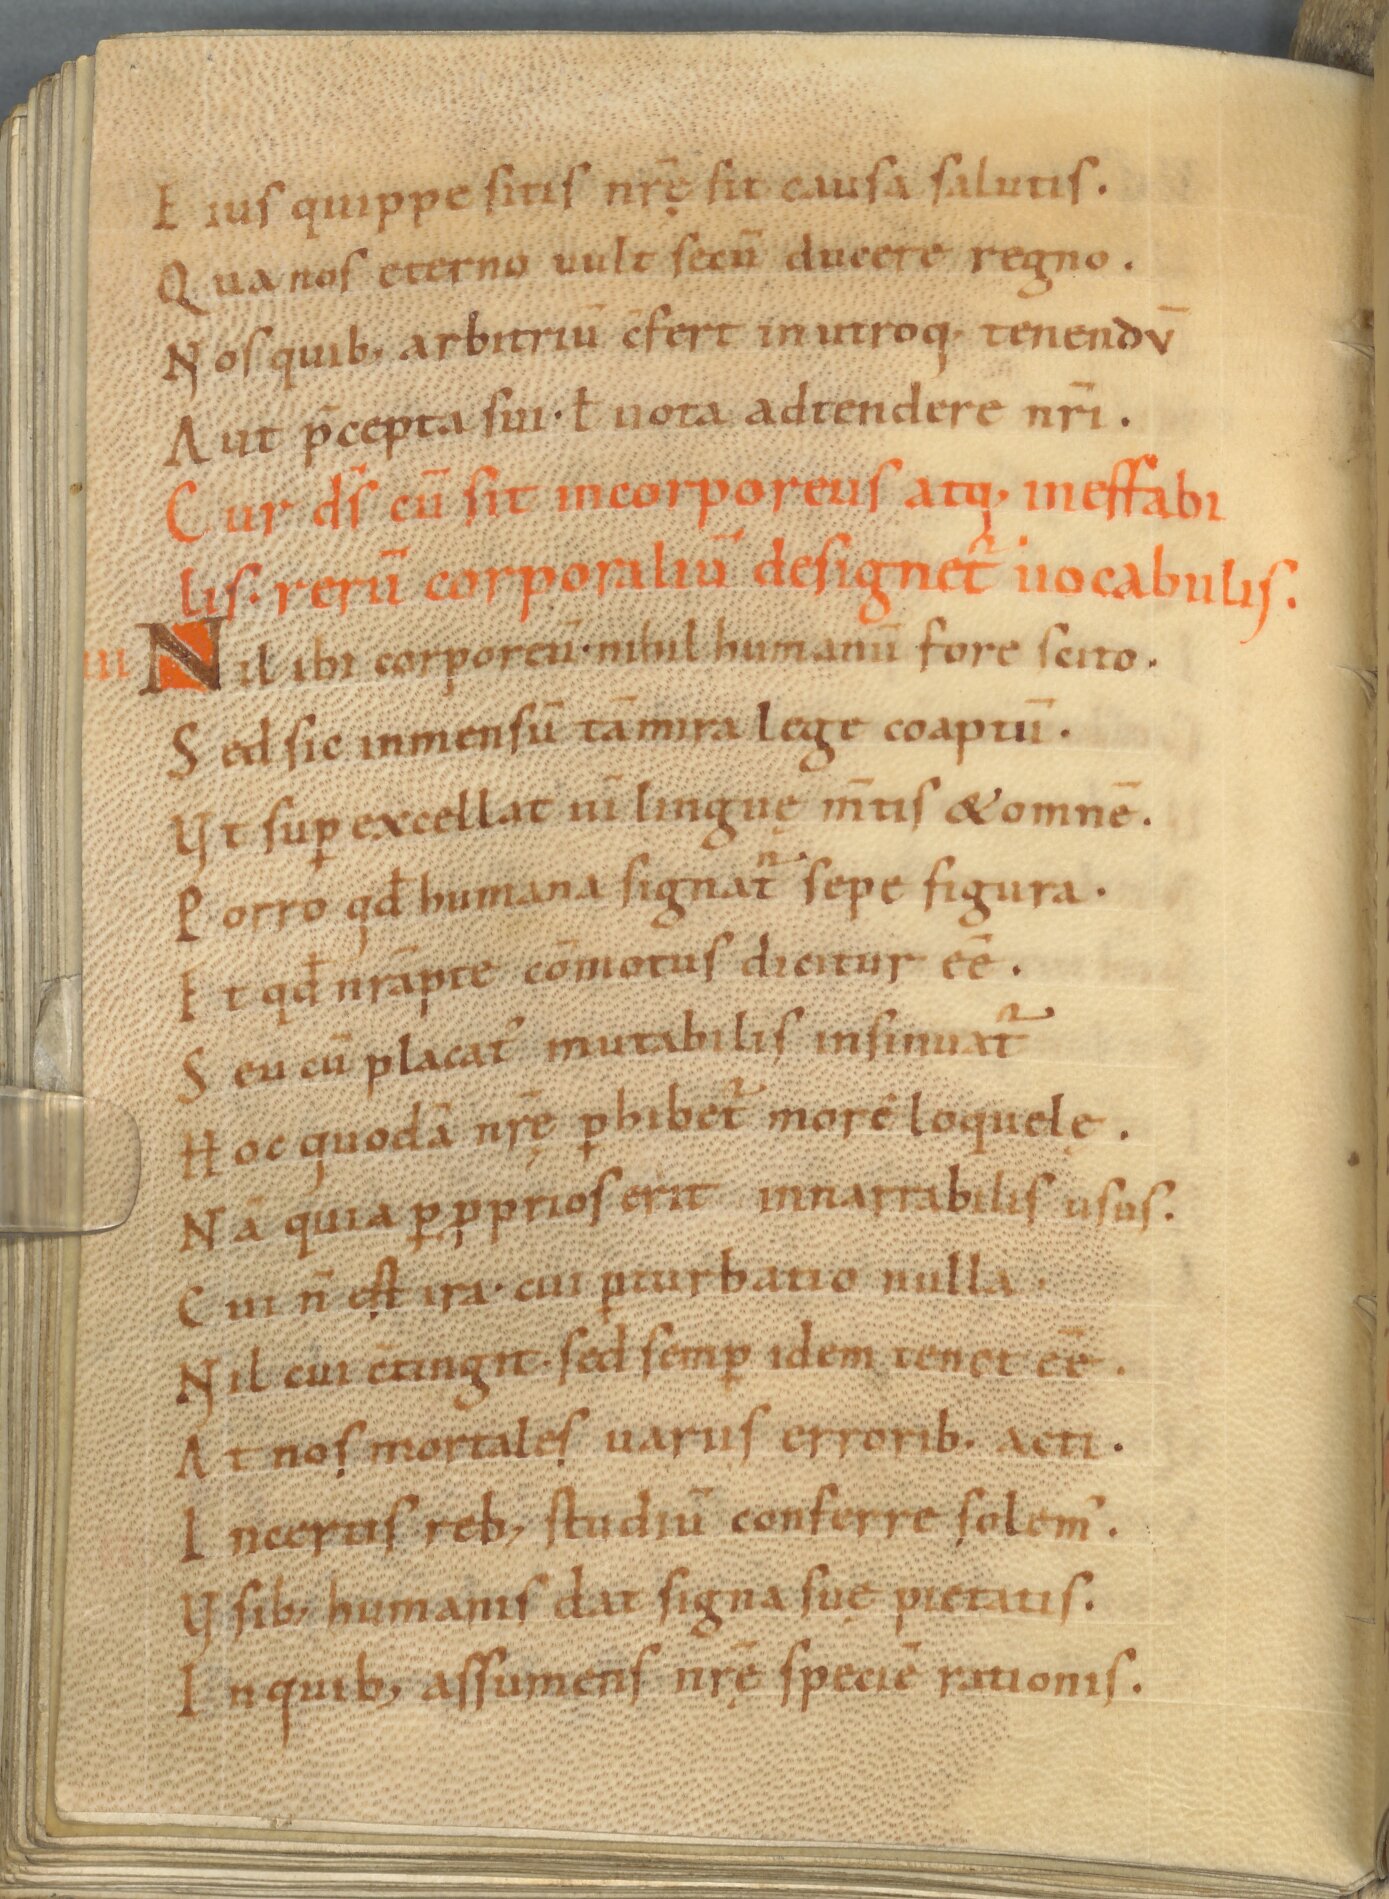 Eius quippe sitis nrę̄ sit causa salutis.
Qua nos eterno uult secū ducere regno.
Nos quib; arbitriū c̄fert in utroq; tenendū
Aut p̄cepta sui· ł uota adtendere nr̄i.
Cur ds̄ cū sit incorporeus atq; ineffabi
lis· rerū corporaliū designet᷑ uocabulis.
III Nil ibi corporeū· nihil humanū fore scito.
Sed sic inmensū tā mira lege coaptū.
Vt suꝑexcellat uī linguę m̄tis & omnē.
Porro qd̄ humana signat᷑ sepe figura.
Et qd̄ nrā ꝑte cōmotus dicitur eē.
Seu cū placat᷑ mutabilis insinuat᷑
Hoc quodā nrę̄ ꝑhibet᷑ more loquelę.
Nā quia ꝑ ꝓprios erit innarrabilis usus.
Cui n̄ est ira· cui ꝑturbatio nulla.
Nil cui c̄tingit· sed semꝑ idem tenet eē.
At nos mortales uariis errorib; acti.
Incertis reb; studiū conferre solem᷒.
Vsib; humanis dat signa suę pietatis.
In quib; assumens nrę̄ speciē rationis.